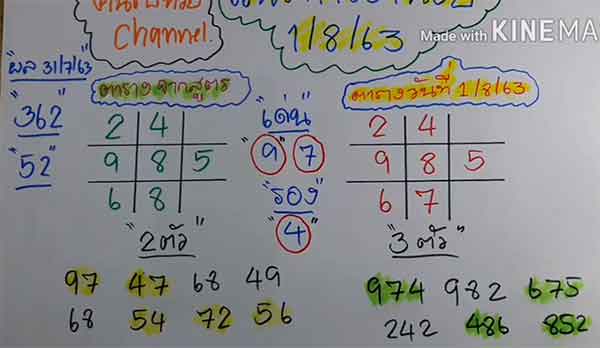 Channel.
1/8/63
Made with KINEMA
"ผล 31/7/63"
"362"
"52"
ตารางจากสูตร
2 4
9 8 5
6 8
"เด่น"
"9" 7
"รอง"
"4"
ตารางวันที่ 1/8/63
2 4
9 8 5
6 7
"2ตัว"
97 47 68 49
68 54 72 56
"3 ตัว"
974 982 675
242 486 852